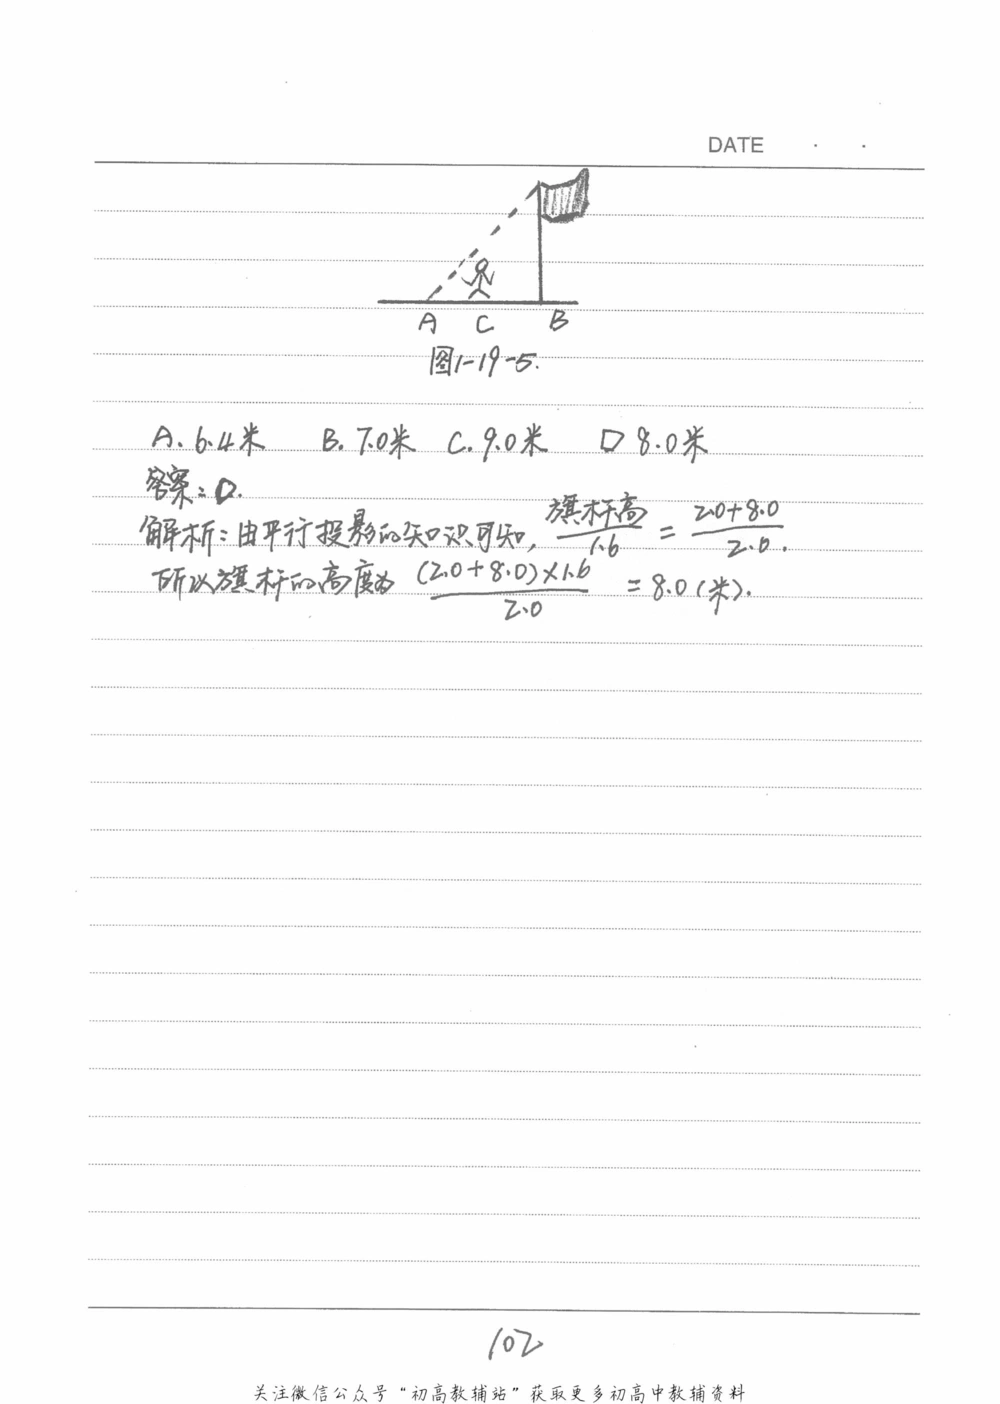 DATE · ·
A C B
图1-19-5.
A. 6.4米 B. 7.0米 C. 9.0米 D 8.0米
答案: D.
解析: 由平行投影的知识可知, 旗杆高/1.6 = (2.0+8.0)/2.0.
所以旗杆的高度为 (2.0+8.0)×1.6/2.0 = 8.0(米).
102
关注微信公众号“初高教辅站”获取更多初高中教辅资料